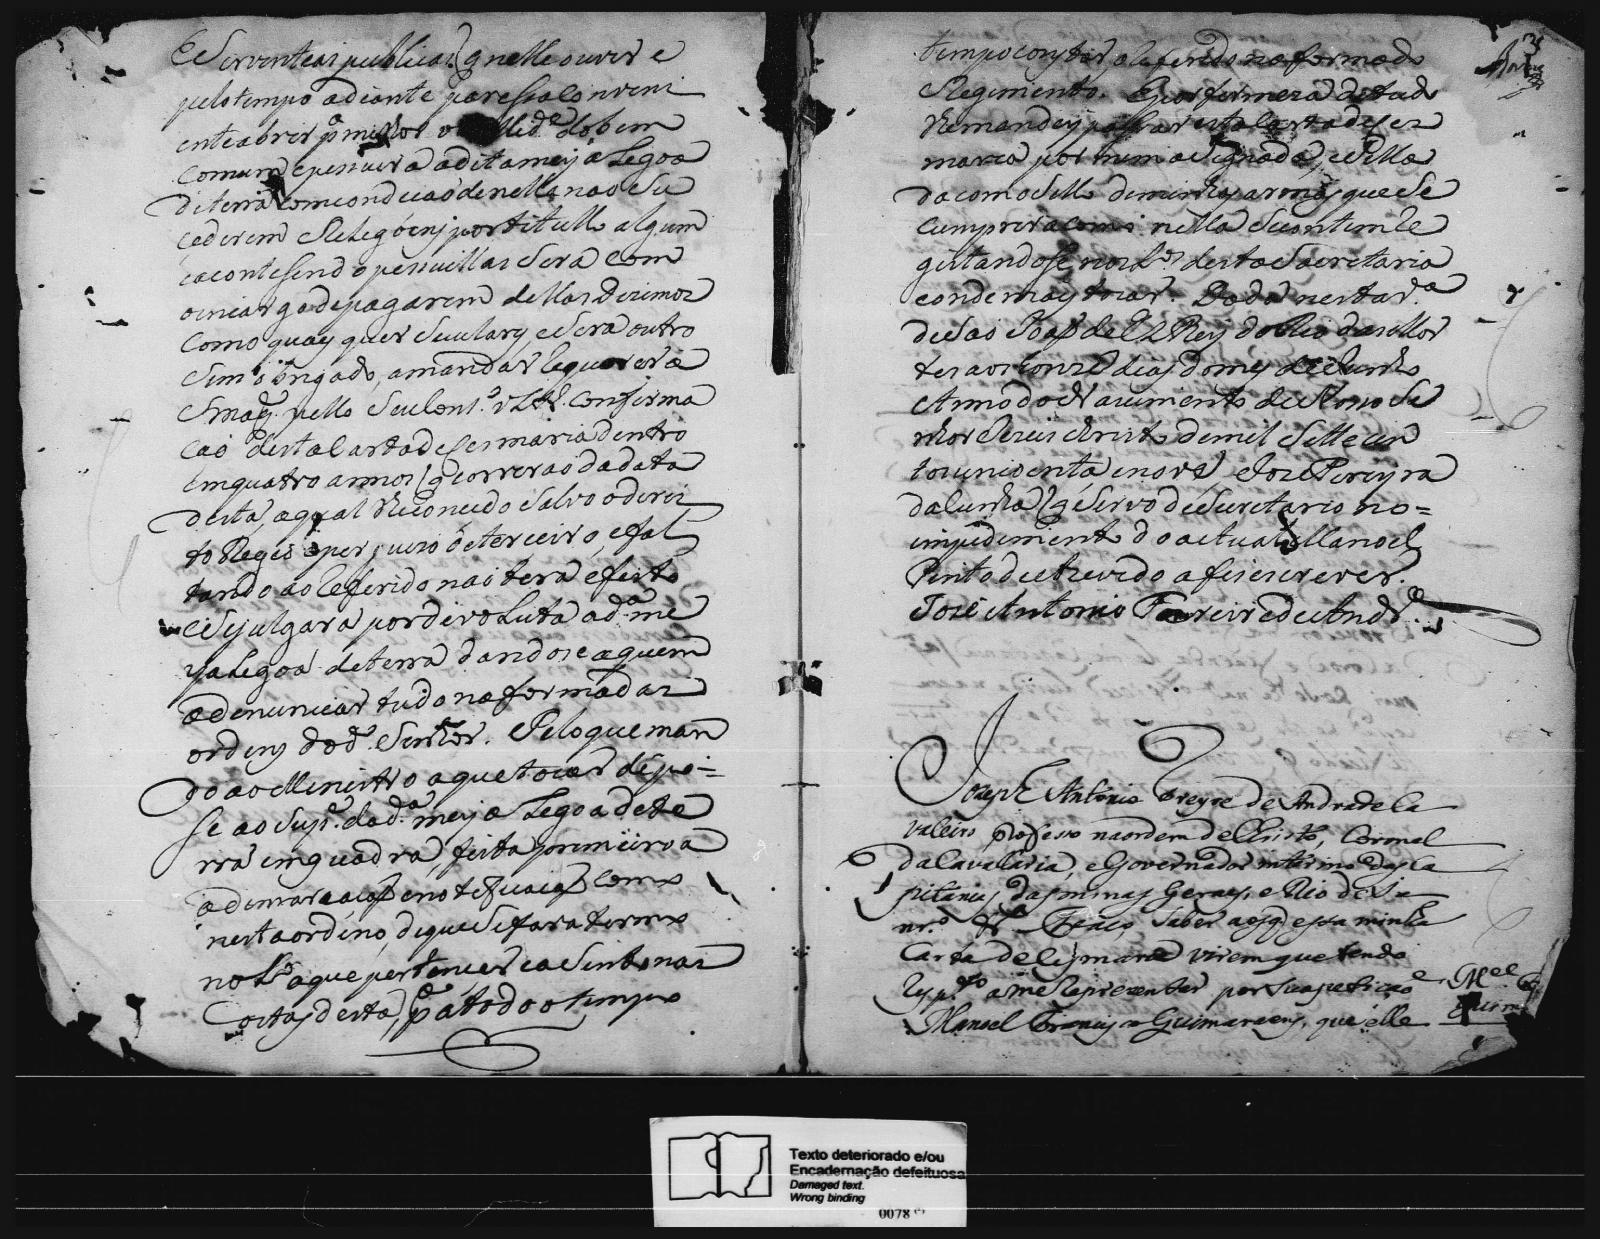 E Serventias publicas q nelle ouver e
pelo tempo adiante paressa conveni
ente abrir pª milhor utillidᵉ do bem
Comum e pessuira a dita meya Legoa
de terra com condicaõ de nella naõ Su
cederem Relegioens por titullo algum
e acontesendo pessuillas Será com
o encargo de pagarem dellas Dizimos
Como quaes quer Seculares, e Será outro
Sim obrigado, a mandar Requerer a
S Magᵉ pello Seu Consº Ultrº Confirma
caõ desta Carta de Sesmaria dentro
em quatro annos q correraõ da data
desta, a qual lhe concedo Salvo o direi
to Regio e perjuizo de terceiro, e fal
tando ao Referido naõ terá efeito
e Se julgará por devoluta a dª me
ya Legoa de terra dandose a quem
a denunciar tudo na forma das
ordens do dº Senhor. Pelo que man
do ao Menistro a que tocar dê po-
se ao Supᵉ da dª meya Legoa de te
rra em quadra, feita primeiro a
a demarcaçaõ e notificaçaõ como
nesta ordeno, de que Se fará termo
no Lº a que pertencer e aSento nas
Costas desta, pª a todo o tempo
tempo constar o Referido na forma do
Regimento. E por firmeza de tudo
lhe mandey passar esta Carta de Ses
maria por mim aSignada, e Sella
da com o Sello de minhas armas, que Se
cumprirá como nella Se contem e
gistandose nos Lºˢ desta Secretaria
e onde mais tocar. Dada nesta vª
de Saõ Joaõ de El Rey do Rio das mor
tes aos onze dias do mes de Junho
Anno do Nacimento de Nosso Se
nhor Jezus Christo de mil e Sette cen
tos e sincoenta e nove, e Joze Pereyra
da Cunha q Servo de Secretario no=
impedimento do actual Manoel
Pinto de Azevedo a fis escrever.
José Antonio Freire de Andrᵉ
Joseph António Freyre de Andrade Ca
valeiro professo na ordem de Christo, Coronel
da Cavalaria, e Governador interino das Ca
pitanias das minas Geraes, e Rio de Ja
nrº &ª Faço Saber aos q esta minha
Carta de Cesmaria virem que tendo
Respᵗᵒ a me Reprezentar por sua petiçaõ
Manoel Francisco Guimaraens, que elle
Mᵉˡ
Guim
Texto deteriorado e/ou
Encadernação defeituosa
Damaged text.
Wrong binding
0078